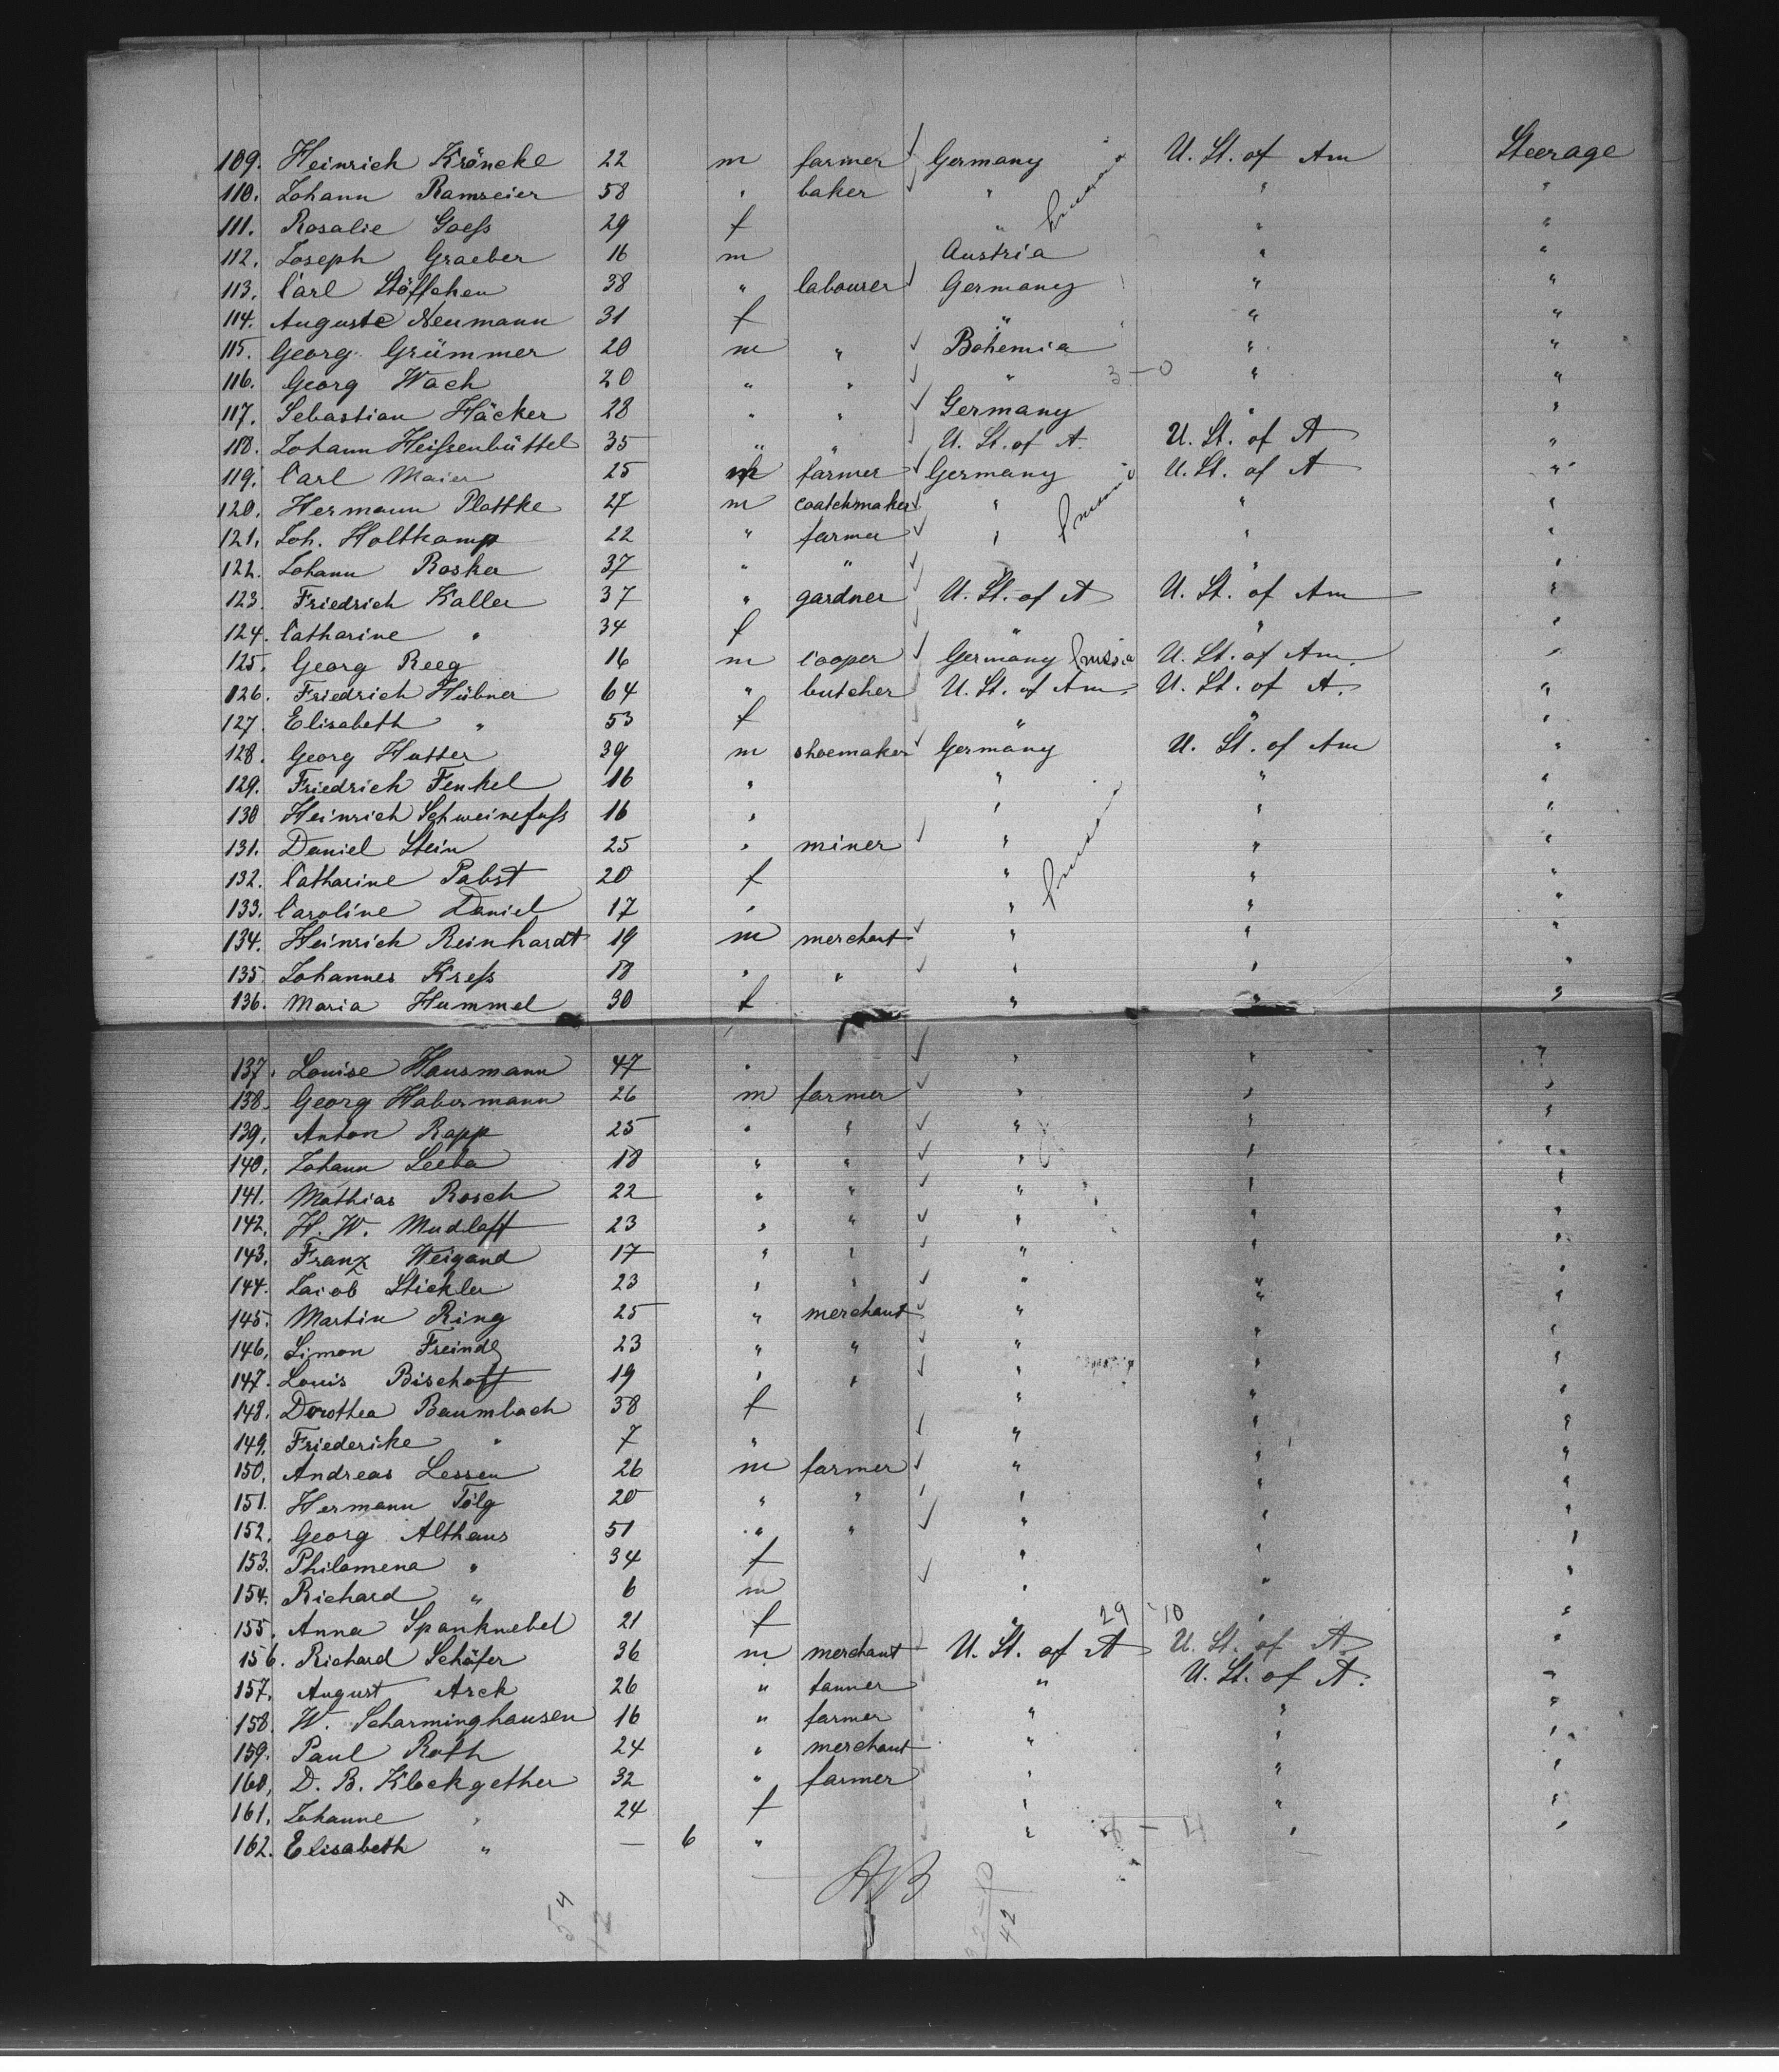 109. Heinrich Kröncke 22 m farmer ✓ Germany U. St. of Am Steerage
110. Johann Ramseier 58 " baker ✓ " " "
111. Rosalie Goess 29 f " " "
112. Joseph Graeber 16 m Austria " "
113. Carl Stöffchen 38 " labourer ✓ Germany " "
114. Auguste Neumann 31 f " " "
115. Georg Grümmer 20 m " ✓ Bohemia " "
116. Georg Wach 20 " " ✓ " 3-0 " "
117. Sebastian Häcker 28 " " ✓ Germany " "
118. Johann Heissenbüttel 35 " " ✓ U. St. of A. U. St. of A "
119. Carl Maier 25 m farmer ✓ Germany U. St. of A "
120. Hermann Plattke 27 m coatchmaker ✓ " " "
121. Joh. Holtkamp 22 " farmer ✓ " " "
122. Johann Rosker 37 " " ✓ " " "
123. Friedrich Kaller 37 " gardner U. St. of A U. St. of Am "
124. Catharine " 34 f " " "
125. Georg Reeg 16 m cooper ✓ Germany Prussia U. St. of Am. "
126. Friedrich Hübner 64 " butcher U. St. of Am. U. St. of A. "
127. Elisabeth " 53 f " " "
128. Georg Hutter 39 m shoemaker ✓ Germany U. St. of Am "
129. Friedrich Fenkel 16 " " " "
130 Heinrich Schweinefuss 16 " " " "
131. Daniel Stein 25 " miner ✓ " " "
132. Catharine Pabst 20 f " " "
133. Caroline Daniel 17 " " " "
134. Heinrich Reinhardt 19 m merchant ✓ " " "
135 Johannes Kress 18 " " ✓ " " "
136. Maria Hummel 30 f " " "
137. Louise Hausmann 47 " ✓ " " "
138. Georg Habermann 26 m farmer ✓ " " "
139. Anton Rapp 25 " " ✓ " " "
140. Johann Leeba 18 " " ✓ " " "
141. Mathias Rosch 22 " " ✓ " " "
142. H. W. Mudlaff 23 " " ✓ " " "
143. Franz Weigand 17 " " ✓ " " "
144. Jacob Stickler 23 " " ✓ " " "
145. Martin Ring 25 " merchant ✓ " " "
146. Simon Freindl 23 " " ✓ " " "
147. Louis Bischoff 19 " " ✓ " " "
148. Dorothea Baumbach 38 f " " "
149. Friedericke " 7 " ✓ " " "
150. Andreas Lessen 26 m farmer ✓ " " "
151. Hermann Tölg 20 " " " " "
152. Georg Althaus 51 " " ✓ " " "
153. Philomena " 34 f " " "
154. Richard " 6 m ✓ " " "
155. Anna Spanknebel 21 f " 29 10 " "
156. Richard Schäfer 36 m merchant U. St. of A U. St. of A "
157. August Arck 26 " tanner " U. St. of A. "
158. W. Scharminghausen 16 " farmer " " "
159. Paul Roth 24 " merchant " " "
160. D. B. Klockgether 32 " farmer " " "
161. Johanne " 24 f " " "
162. Elisabeth " — 6 " " " "
AB
54
12
42